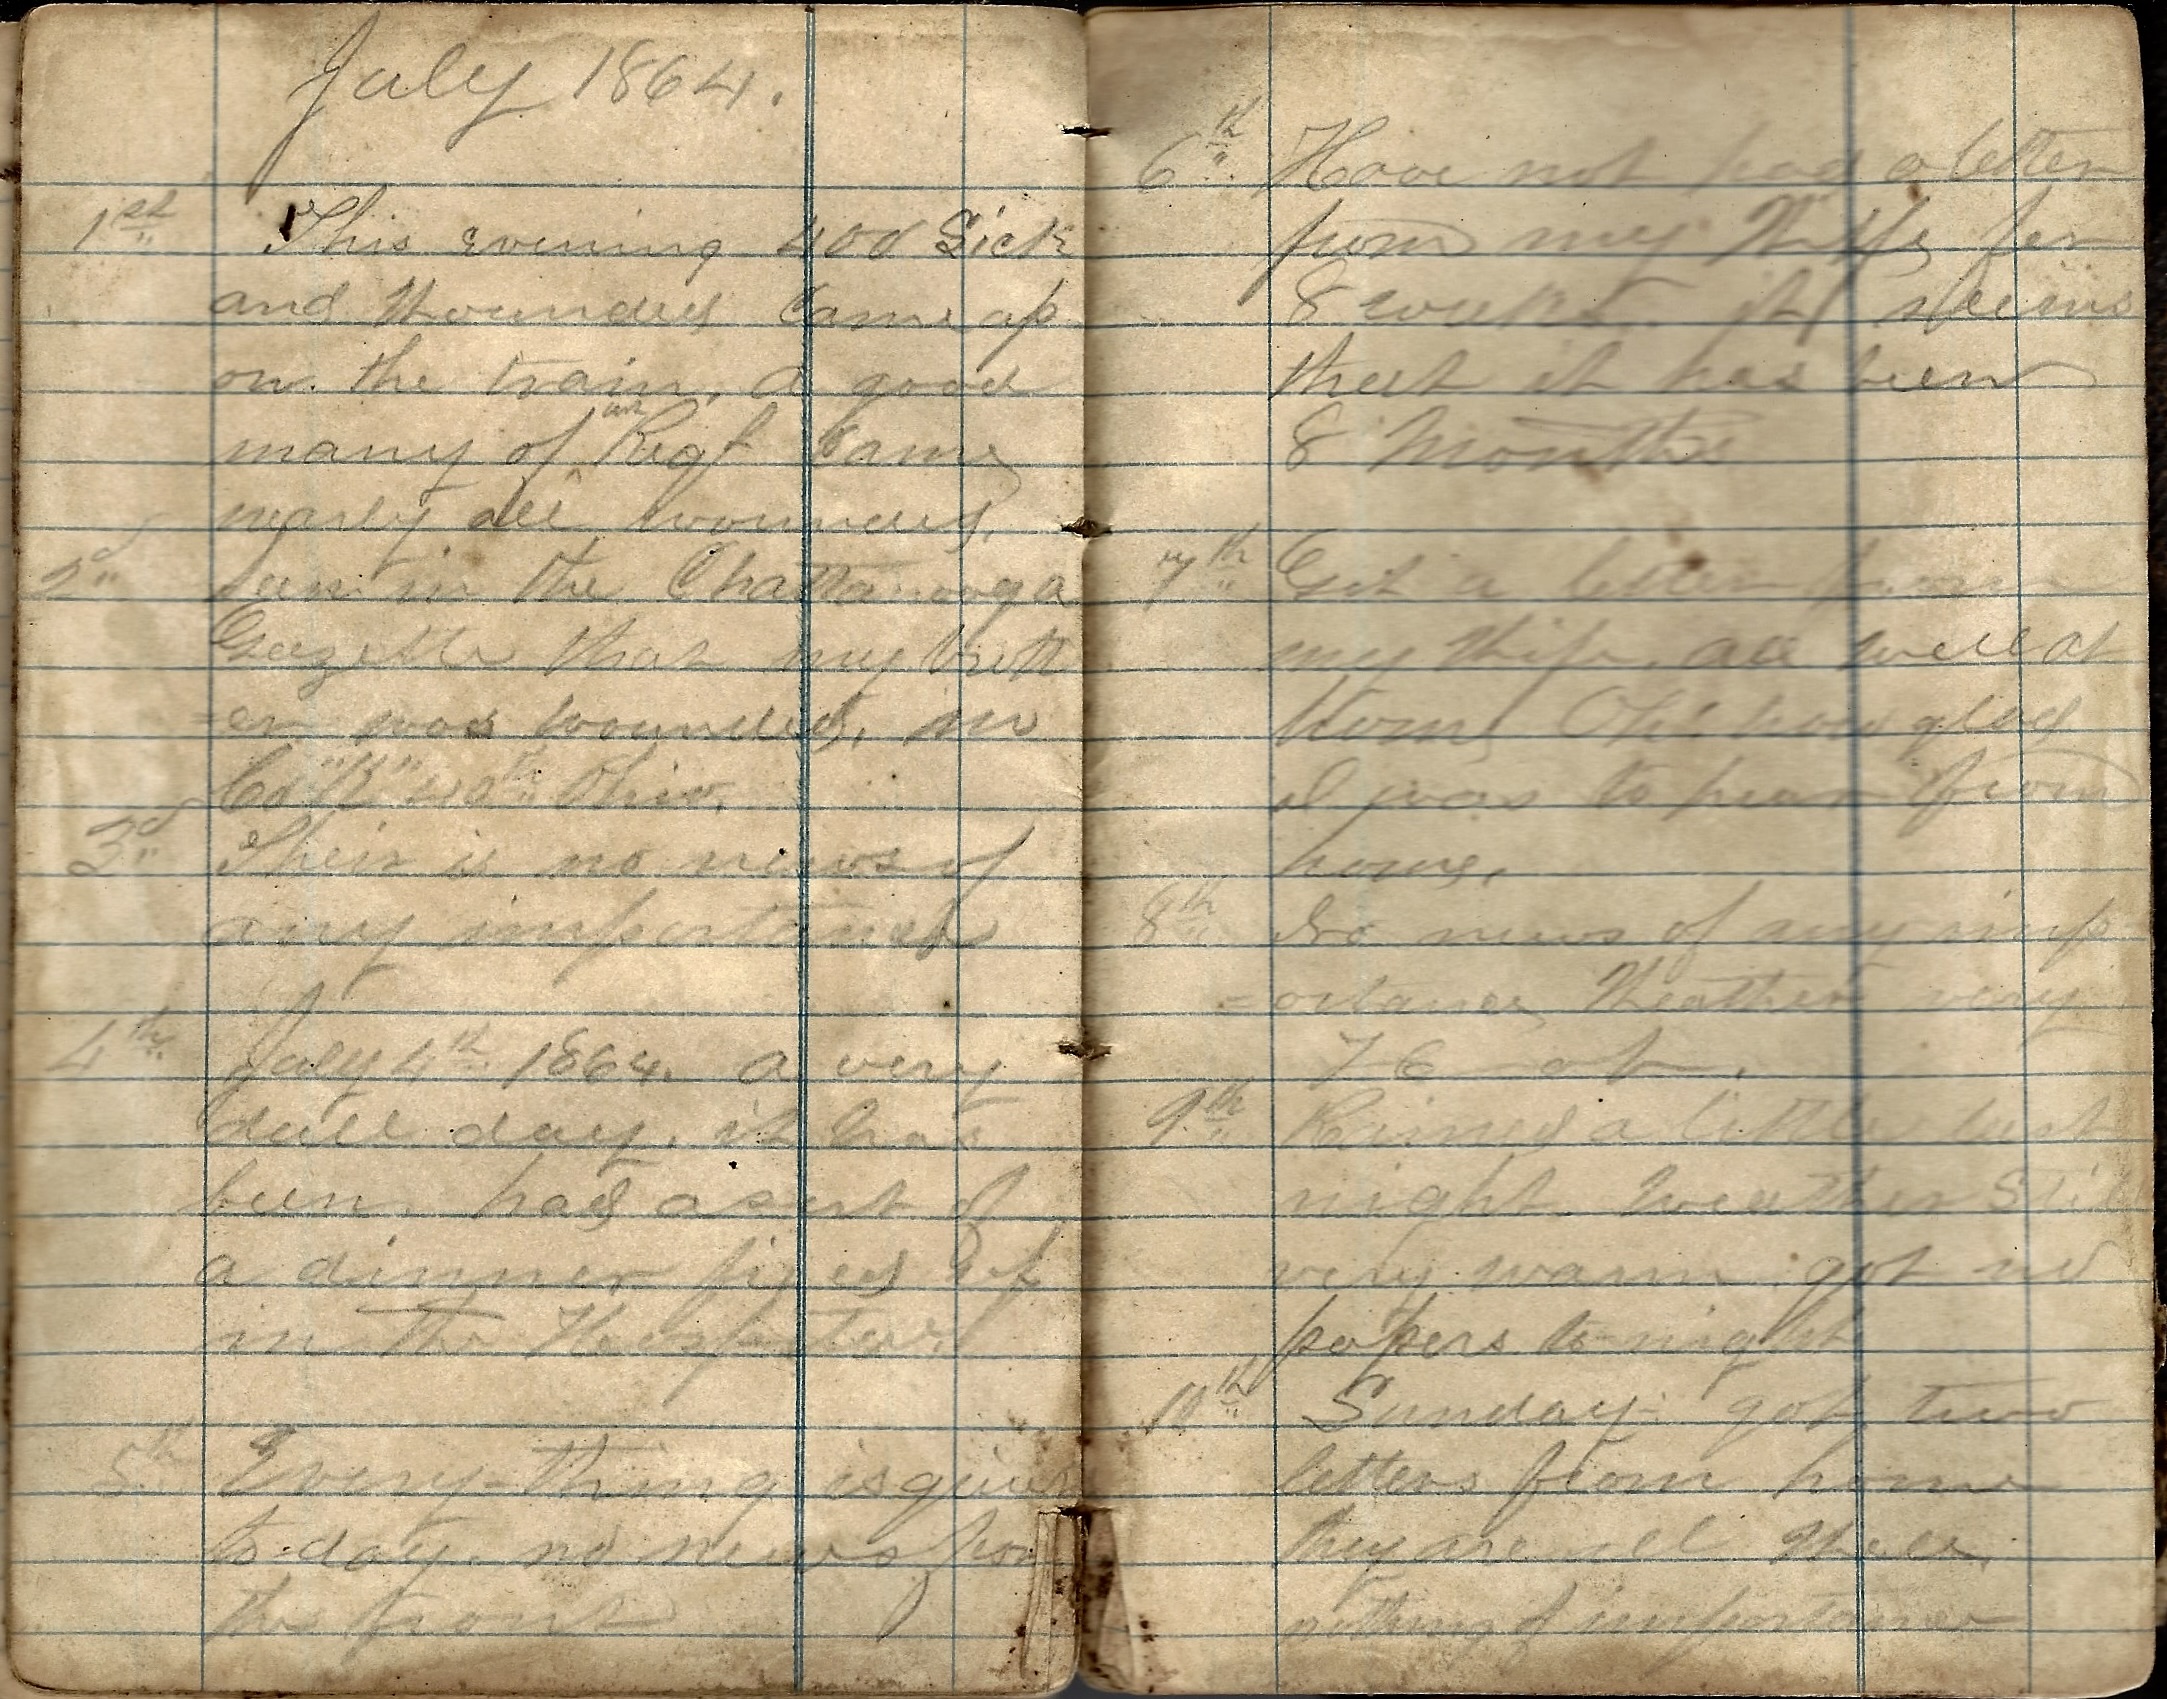 July 1864.
1st This evening 400 Sick
and Wounded Came up
on the train, a good
many of our Regt Came
nearly all wounded.
2d Saw in the Chattanooga
Gazette that my broth
=er was wounded, in
Co "K" Ohio.
3d Their is no news of
any importance
4th July 4th 1864. a very
dull day. it has
been. had a sort of
a dinner fixed up
in the Hospital.
5th Every-thing is quiet
to-day. no news from
the front
6th Have not had a letter
from my Wife for
8 weeks. it seems
that it has been
8 Months
7th Got a letter from
my Wife. all well at
Home Oh! how glad
I was to hear from
home.
8th No news of any imp
=ortance, Weather very
9th Rained a little last
night. Weather Still
very warm. got no
papers to-night
10th Sunday. got two
letters from home
they are all Well.
nothing of importance